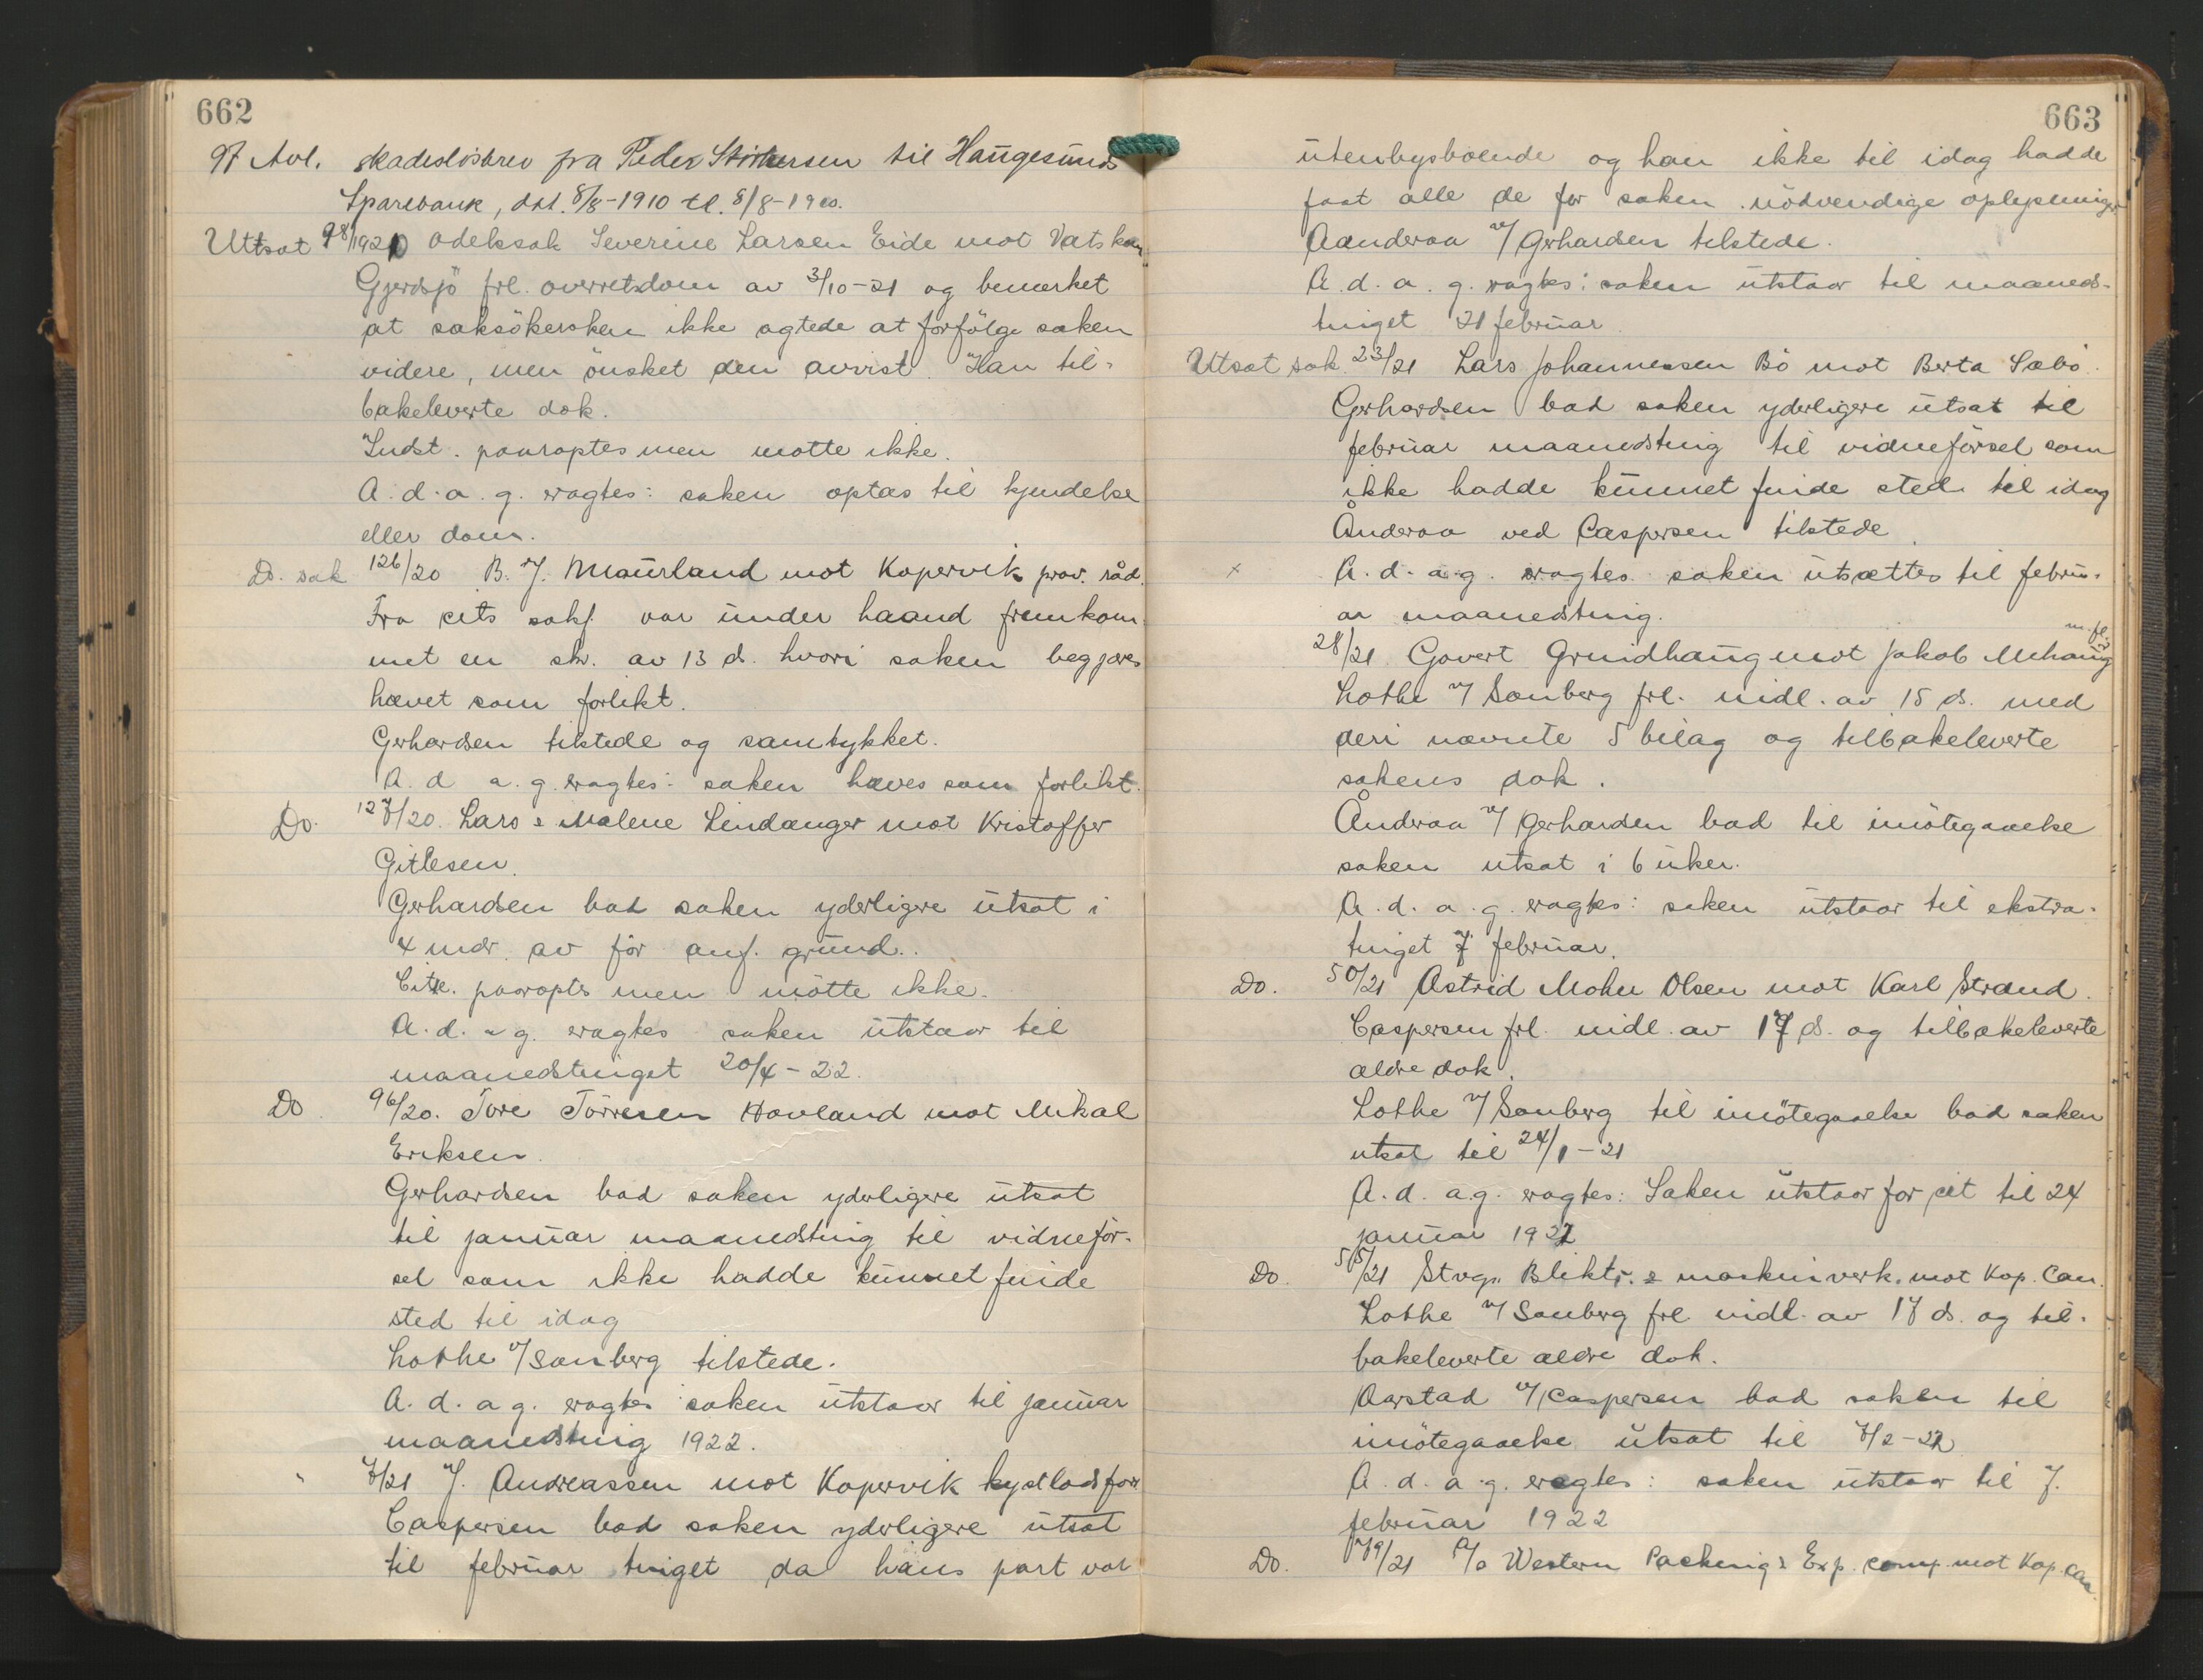 662
97 Avl. skadeslösbrev fra Peder Störkersen til Haugesunds
Sparebank, dat. 8/8-1910 tl. 8/8-1910.
Utsat 98/1920 odelssak Severine Larsen Eide mot Vatskom.
Gjerdsjö frl. overretsdom av 3/10-21 og bemerket
at saksökersken ikke agtede at forfölge saken
videre, men önsket den avvist. Han til-
bakeleverte dok.
Indst. paaroptes men mötte ikke.
A. d. a. g. eragtes: saken optas til kjendelse
eller dom.
Do. sak 126/20 B. J. Maurland mot Kopervik prov. råd.
Fra cits sakf. var under haand fremkom-
met en skr. av 13 ds. hvori saken begjæres
hævet som forlikt.
Gerhardsen tilstede og samtykket.
A. d. a. g. eragtes: saken hæves som forlikt.
Do. 127/20. Lars & Malene Lindanger mot Kristoffer
Gitlesen.
Gerhardsen bad saken yderligere utsat i
4 mdr. av för anf. grund.
Citr. paaroptes men mötte ikke.
A. d. a. g. eragtes saken utstaar til
maanedstinget 20/4-22.
Do. 96/20. Tore Törresen Hovland mot Mikal
Eriksen.
Gerhardsen bad saken yderligere utsat
til januar maanedsting til vidneför-
sel som ikke hadde kunnet finde
sted til idag
Lothe v/ Sønberg tilstede.
A. d. a. g. eragtes saken utstaar til januar
maanedsting 1922.
" 7/21 J. Andreassen mot Kopervik kystlodsfor.
Caspersen bad saken yderligere utsat
til februar tinget da hans part var
663
utenbysboende og han ikke til idag hadde
faat alle de for saken nödvendige oplysninger
Aanderaa v/ Gerhardsen tilstede.
A. d. a. g. eragtes: saken utstaar til maaneds-
tinget 21 februar.
Utsat sak. 23/21 Lars Johannessen Bö mot Berta Sæbö.
Gerhardsen bad saken yderligere utsat til
februar maanedsting til vidneförsel som
ikke hadde kunnet finde sted til idag
Ånderaa ved Caspersen tilstede.
x A. d. a. g. eragtes saken utsættes til febru-
ar maanedsting.
m. fl.
28/21 Govert Grindhaug mot Jakob Mehaug
Lothe v/ Sønberg frl. indl. av 15 ds. med
deri nævnte 5 bilag og tilbakeleverte
sakens dok.
Ånderaa v/ Gerhardsen bad til imötegaaelse
saken utsat i 6 uker.
A. d. a. g. eragtes: saken utstaar til ekstra-
tinget 7 februar.
Do. 50/21 Astrid Mohn Olsen mot Karl Strand.
Caspersen frl. indl. av 17 ds. og tilbakeleverte
ældre dok.
Lothe v/ Sønberg til imötegaaelse bad saken
utsat til 24/1-21
A. d. a. g. eragtes: Saken utstaar for cit til 24
januar 1922
Do. 55/21 Stvgr. Blikktr. & maskinverk. mot Kop. Can.
Lothe v/ Sønberg frl indl. av 17 ds. og til-
bakeleverte ældre dok.
Aarstad v/ Caspersen bad saken til
imötegaaelse utsat til 7/2-22
A. d. a. g. eragtes: saken utstaar til 7.
februar 1922
Do. 79/21 A/S Western Packing & Exp. comp mot Kop. Can.